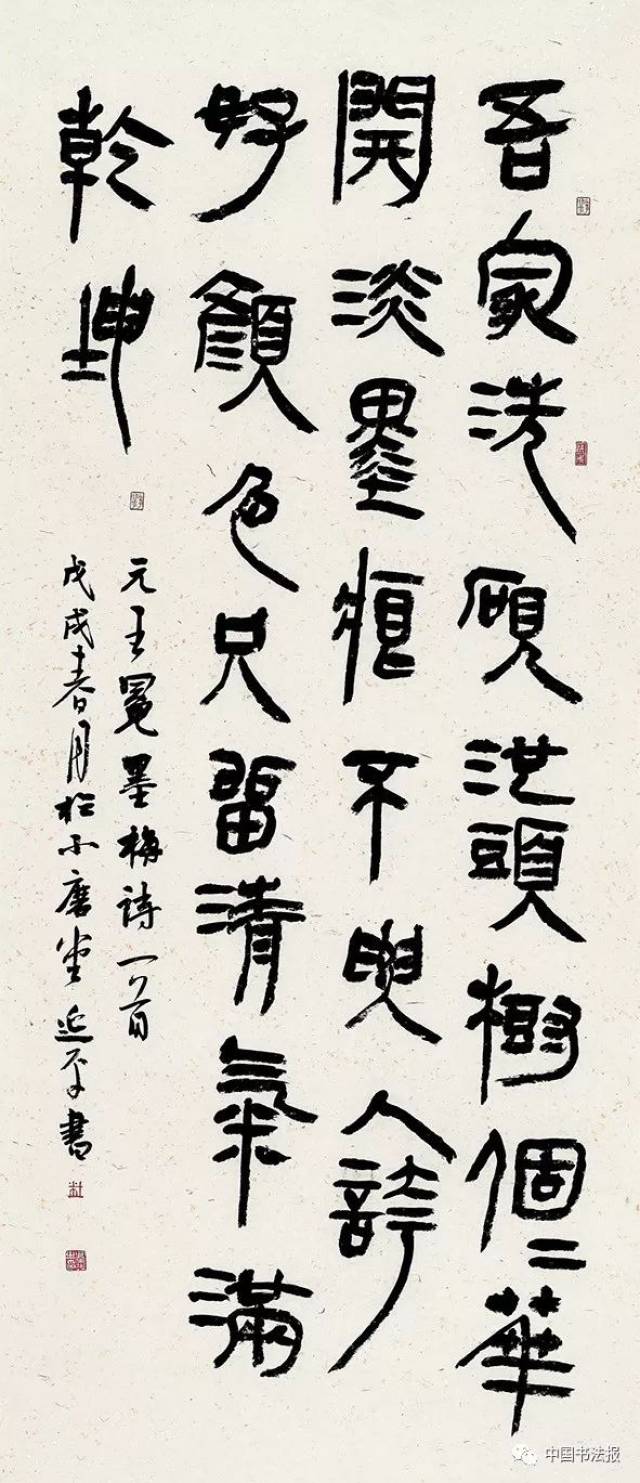 吾家洗硯池頭樹個〻華
開淡墨痕不與人誇
好顏色只留清氣滿
乾坤
元王冕墨梅詩一首
戊戌春月於不磨堂延平書
中国书法报